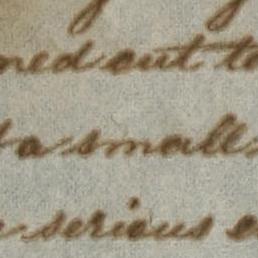 ned out to
a small
serious